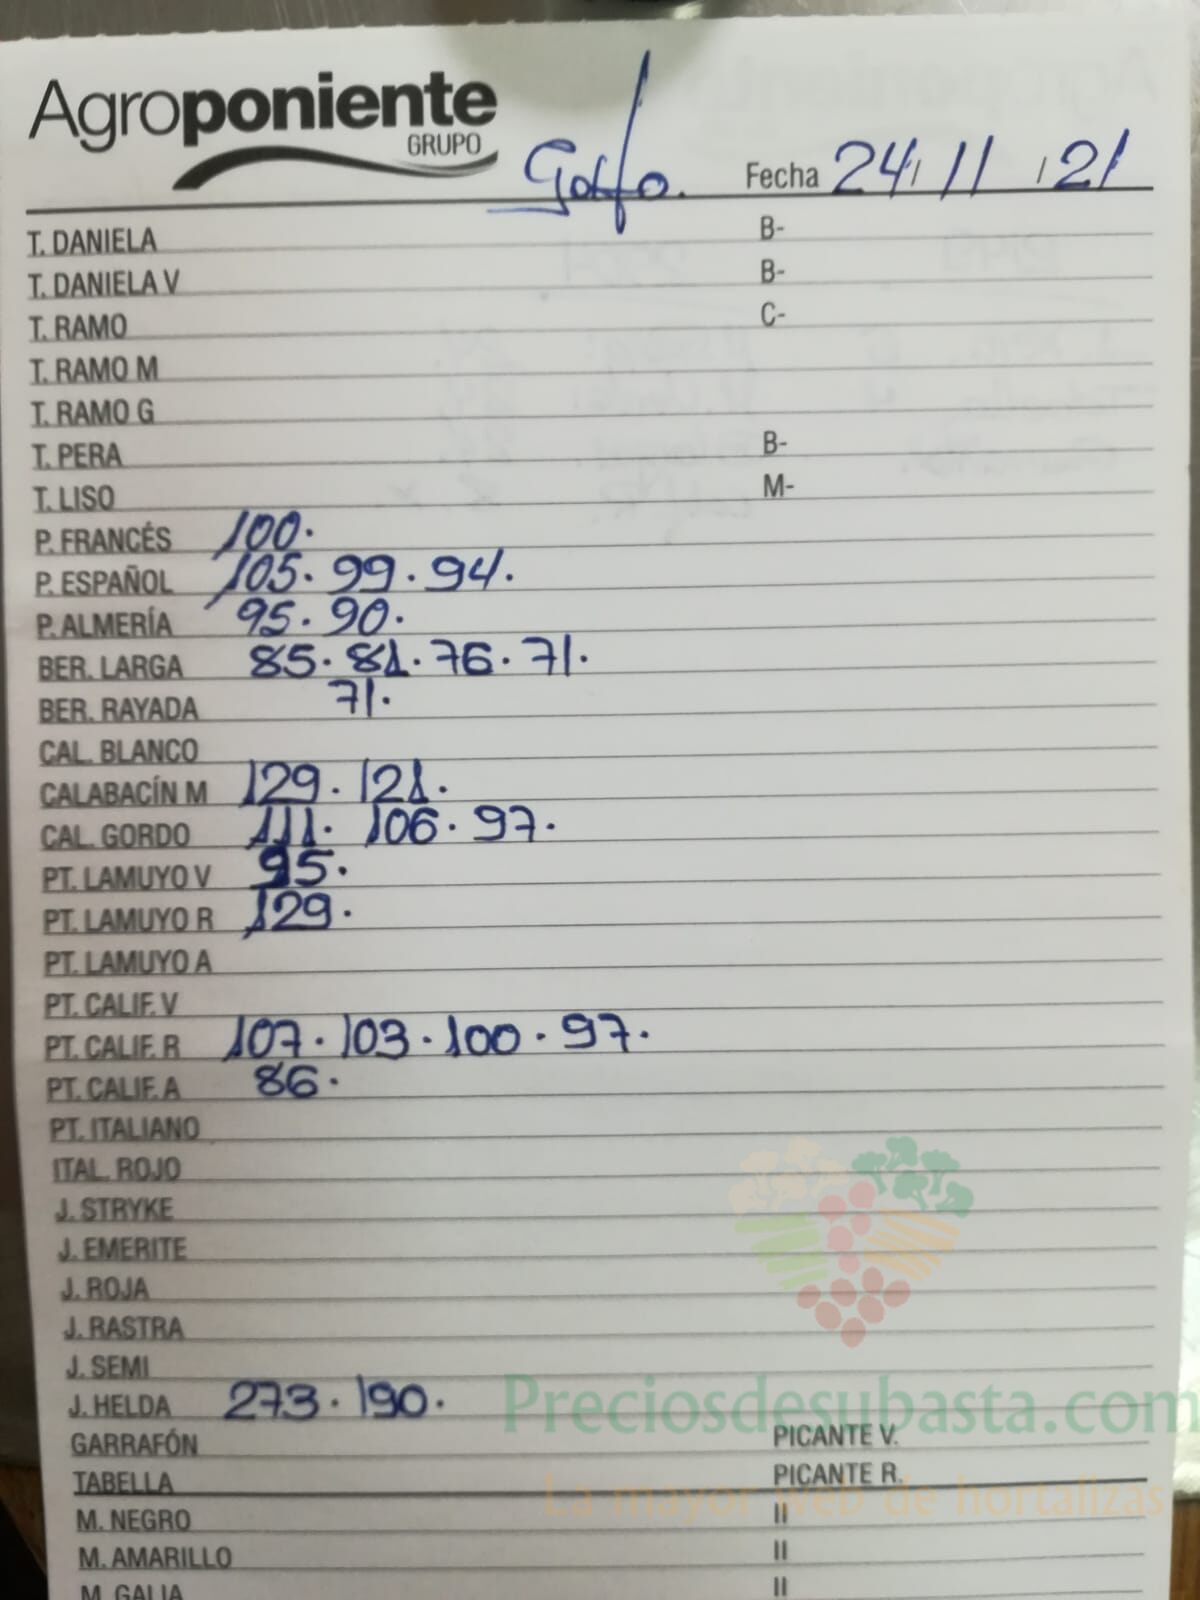 Agroponiente
GRUPO
Golfo. Fecha 24/11/21
T. DANIELA B-
T. DANIELA V B-
T. RAMO C-
T. RAMO M
T. RAMO G
T. PERA B-
T. LISO M-
P. FRANCÉS 100.
P. ESPAÑOL 105. 99. 94.
P. ALMERÍA 95. 90.
BER. LARGA 85. 81. 76. 71.
BER. RAYADA 71.
CAL. BLANCO
CALABACÍN M 129. 121.
CAL. GORDO 111. 106. 97.
PT. LAMUYO V 95.
PT. LAMUYO R 129.
PT. LAMUYO A
PT. CALIF. V
PT. CALIF. R 107. 103. 100. 97.
PT. CALIF. A 86.
PT. ITALIANO
ITAL. ROJO
J. STRYKE
J. EMERITE
J. ROJA
J. RASTRA
J. SEMI
J. HELDA 273. 190.
Preciosdesubasta.com
GARRAFÓN PICANTE V.
TABELLA PICANTE R.
La mayor web de hortalizas
M. NEGRO II
M. AMARILLO II
M. GALIA II